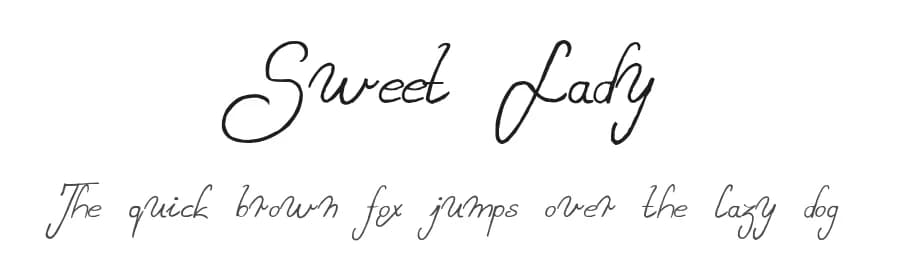 Sweet Lady
The quick brown fox jumps over the lazy dog